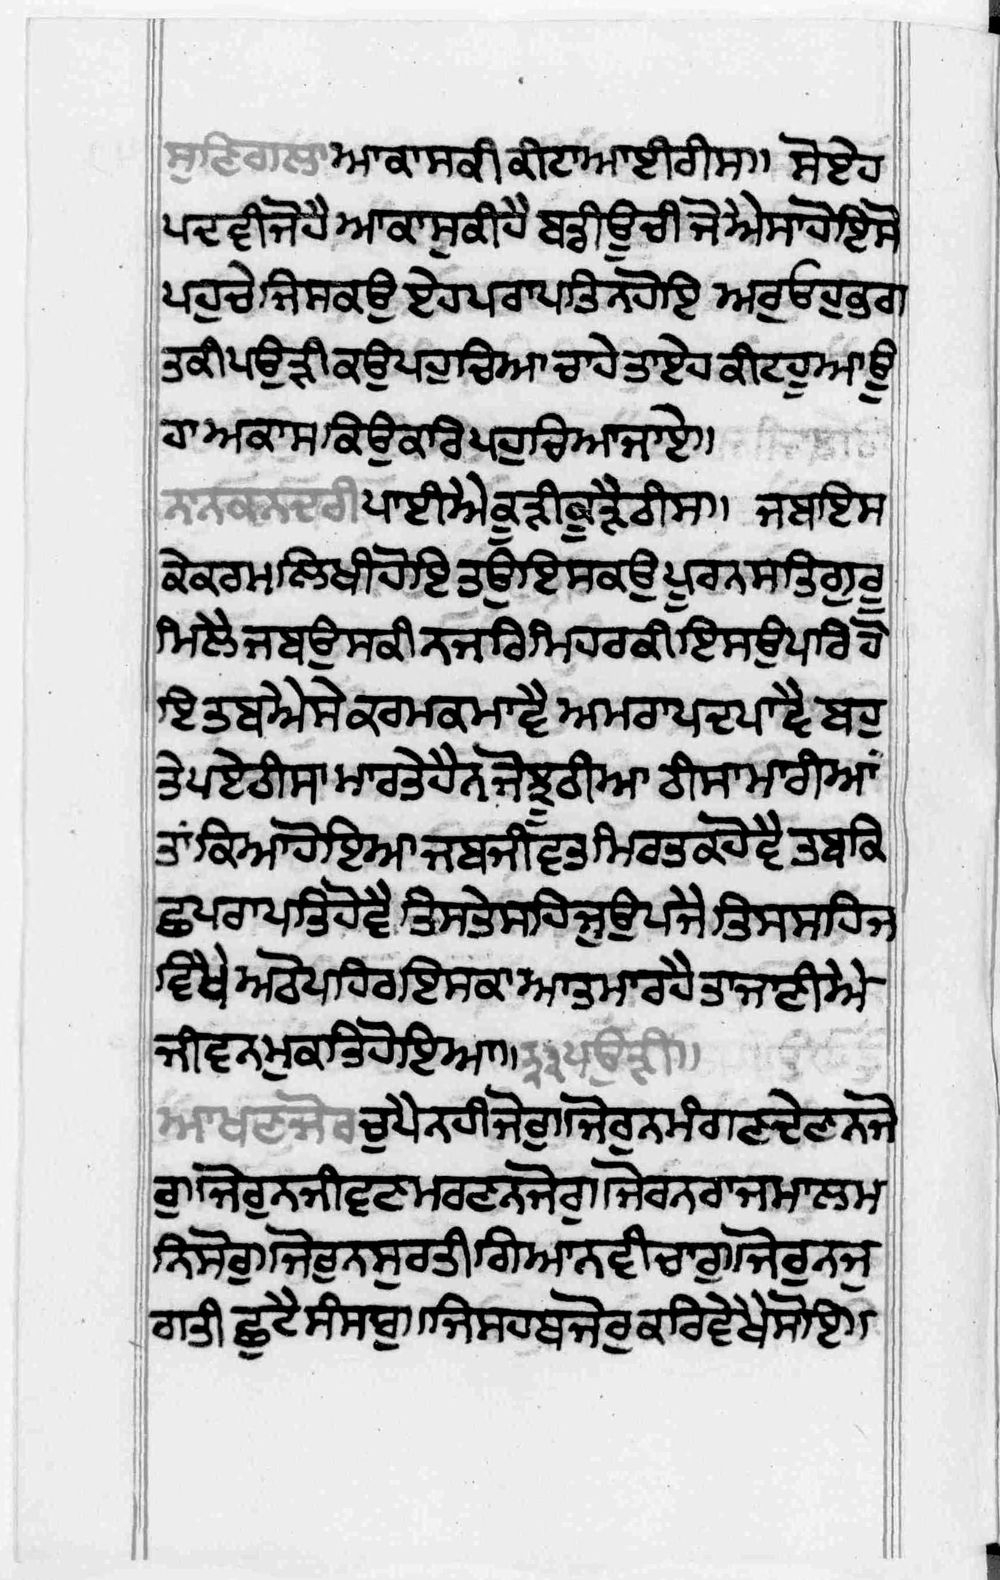 ਸੁਣਿਗਲਾਆਕਾਸਕੀਕੀਟਾਆਈਰੀਸ॥ ਸੋਏਹ
ਪਦਵੀਜੋਹੈਆਕਾਸੁਕੀਹੈਬਡੀਊਚੀਜੋਐਸਾਹੋਇਸੋ
ਪਹੁਚੇਜਿਸਕਉਏਹਪਰਾਪਤਿਨਹੋਇ ਅਰੁਓਹੁਕੁਰਾ
ਤਕੀਪਉੜੀਕਉਪਹੁਚਿਆਚਾਹੇਤਾਏਹਕੀਟਹੂਆਊ
ਹਾਅਕਾਸ।ਕਿਉਕਰਿਪਹੁਚਿਆਜਾਏ।
ਨਾਨਕਨਦਰੀਪਾਈਐਕੂੜੀਕੂੜੈਠੀਸ॥ ਜਬਇਸ
ਕੇਕਰਮ।ਲਿਖੀਹੋਇਤਉਇਸਕਉਪੂਰਨਸਤਿਗੁਰੂ
ਮਿਲੈਜਬਉਸਕੀਨਜਰਿਮਿਹਰਕੀਇਸਉਪਰਿਹੋ
ਇਤਬਐਸੇਕਰਮਕਮਾਵੈਅਮਰਾਪਦਪਾਵੈਬਹੁ
ਤੇਪਏਠੀਸਾਮਾਰਤੇਹੈਨਜੋਝੂਠੀਆਠੀਸਾਮਾਰੀਆਂ
ਤਾਂਕਿਆਹੋਇਆਜਬਜੀਵਤਮਿਰਤਕਹੋਵੈਤਬਕਿ
ਛਪਰਾਪਤਿਹੋਵੈਤਿਸਤੇਸਹਿਜੁਉਪਜੈਤਿਸਸਹਿਜ
ਵਿਖੈਅਠੋਪਹਿਰਇਸਕਾਆਤਮਾਰਹੈਤਾਜਾਣੀਐ
ਜੀਵਨਮੁਕਤਿਹੋਇਆ॥੩੩ਪਉੜੀ॥
ਆਖਣਜੋਰਚੁਪੈਨਹੀਜੋਰੁ।ਜੋਰੁਨਮੰਗਣਦੇਣਨਜੋ
ਰੁ।ਜੋਰੁਨਜੀਵਣਮਰਣਨਜੋਰੁ।ਜੋਰਨਰਾਜਮਾਲਮ
ਨਿਸੋਰੁ।ਜੋਰੁਨਸੁਰਤੀਗਿਆਨਵੀਚਾਰੁ।ਜੋਰੁਨਜੁ
ਗਤੀਛੁਟੈਸੰਸਾਰੁ।ਜਿਸਹਥਜੋਰੁਕਰਿਵੇਖੈਸੋਇ।